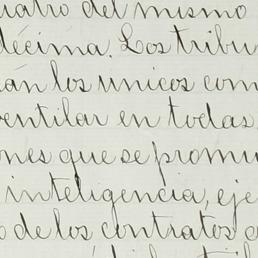 cuatro del mismo
décima. Los tribu
rán los unicos com
ventilar en todas
ones que se promu
inteligencia, eje
o de los contratos c